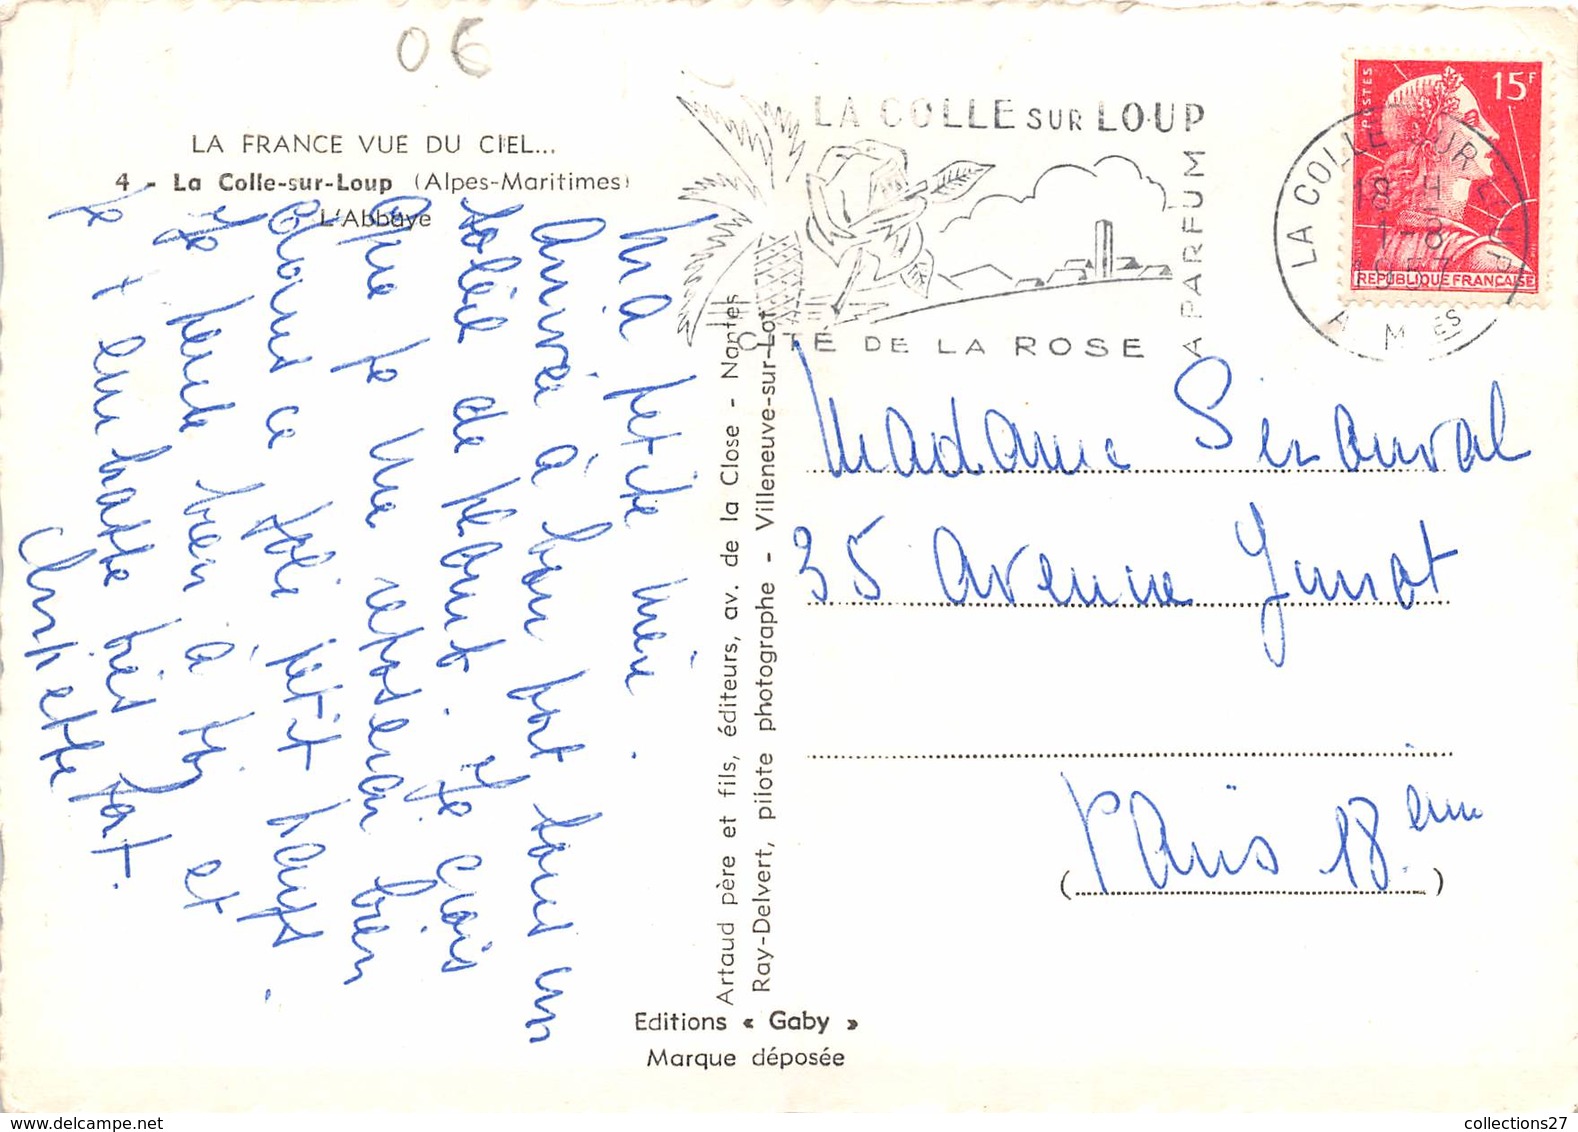 06
LA FRANCE VUE DU CIEL...
4 - La Colle-sur-Loup (Alpes-Maritimes)
L'Abbaye
ma petite mère.
Arrivée à bon port sous un
soleil de plomb. Je crois
que je me reposerai bien
dans ce joli petit pays.
Je pense bien à toi et
je t'embrasse très fort.
Artaud père et fils, éditeurs, av. de la Close - Nantes
Ray-Delvert, pilote photographe - Villeneuve-sur-Lot
Editions « Gaby »
Marque déposée
LA COLLE SUR LOUP
CITÉ DE LA ROSE
A PARFUM
LA COLLE SUR LOUP
18 H
1-8
1957
A. MMES
POSTES
15F
REPUBLIQUE FRANCAISE
Madame
35 Avenue Junot
Paris 18.ème
collections27